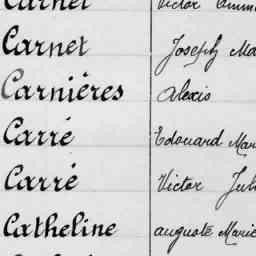 Carnet Victor
Carnet Joseph Ma
Carnières Alexis
Carré Edouard Mar
Carré Victor Jul
Catheline auguste Marie